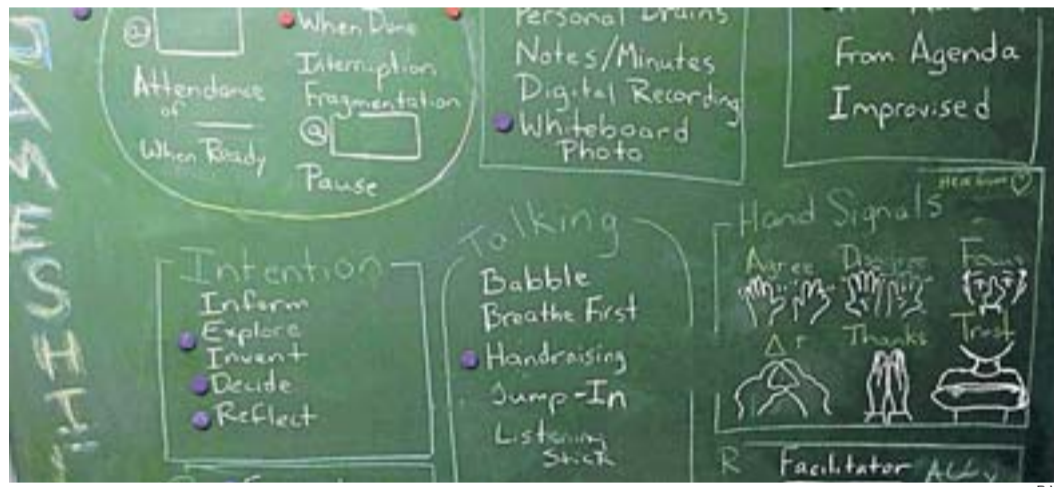 GAMESHI!
@
Attendance
of
When Ready
When Done
Interruption
Fragmentation
@
Pause
Personal Brains
Notes/Minutes
Digital Recording
Whiteboard
Photo
From Agenda
Improvised
Intention
Inform
Explore
Invent
Decide
Reflect
Talking
Babble
Breathe First
Handraising
Jump-In
Listening
Stick
Hand Signals
Agree
Focus
Thanks
Trust
R Facilitator